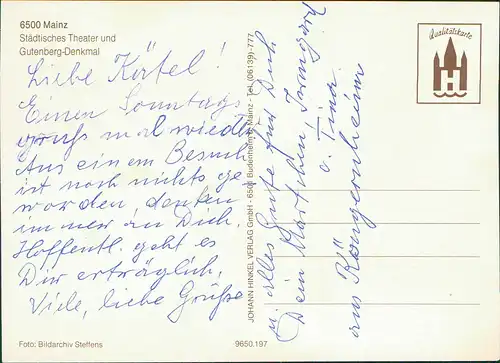 6500 Mainz
Städtisches Theater und
Gutenberg-Denkmal
Liebe Kärtel!
Einen Sonntags
gruß mal wieder
Aus einem Besuch
ist noch nichts ge
worden, denken
immer an Dich.
Hoffentl. geht es
Dir erträglich.
Viele, liebe Grüße
u. alles Gute für Dich
Dein Klärchen Irmgard
u. Tina
aus Köngernheim
JOHANN HINKEL VERLAG GmbH - 6501 Budenheim b. Mainz - Tel. (06139)-777
Qualitätskarte
H
Foto: Bildarchiv Steffens
9650.197